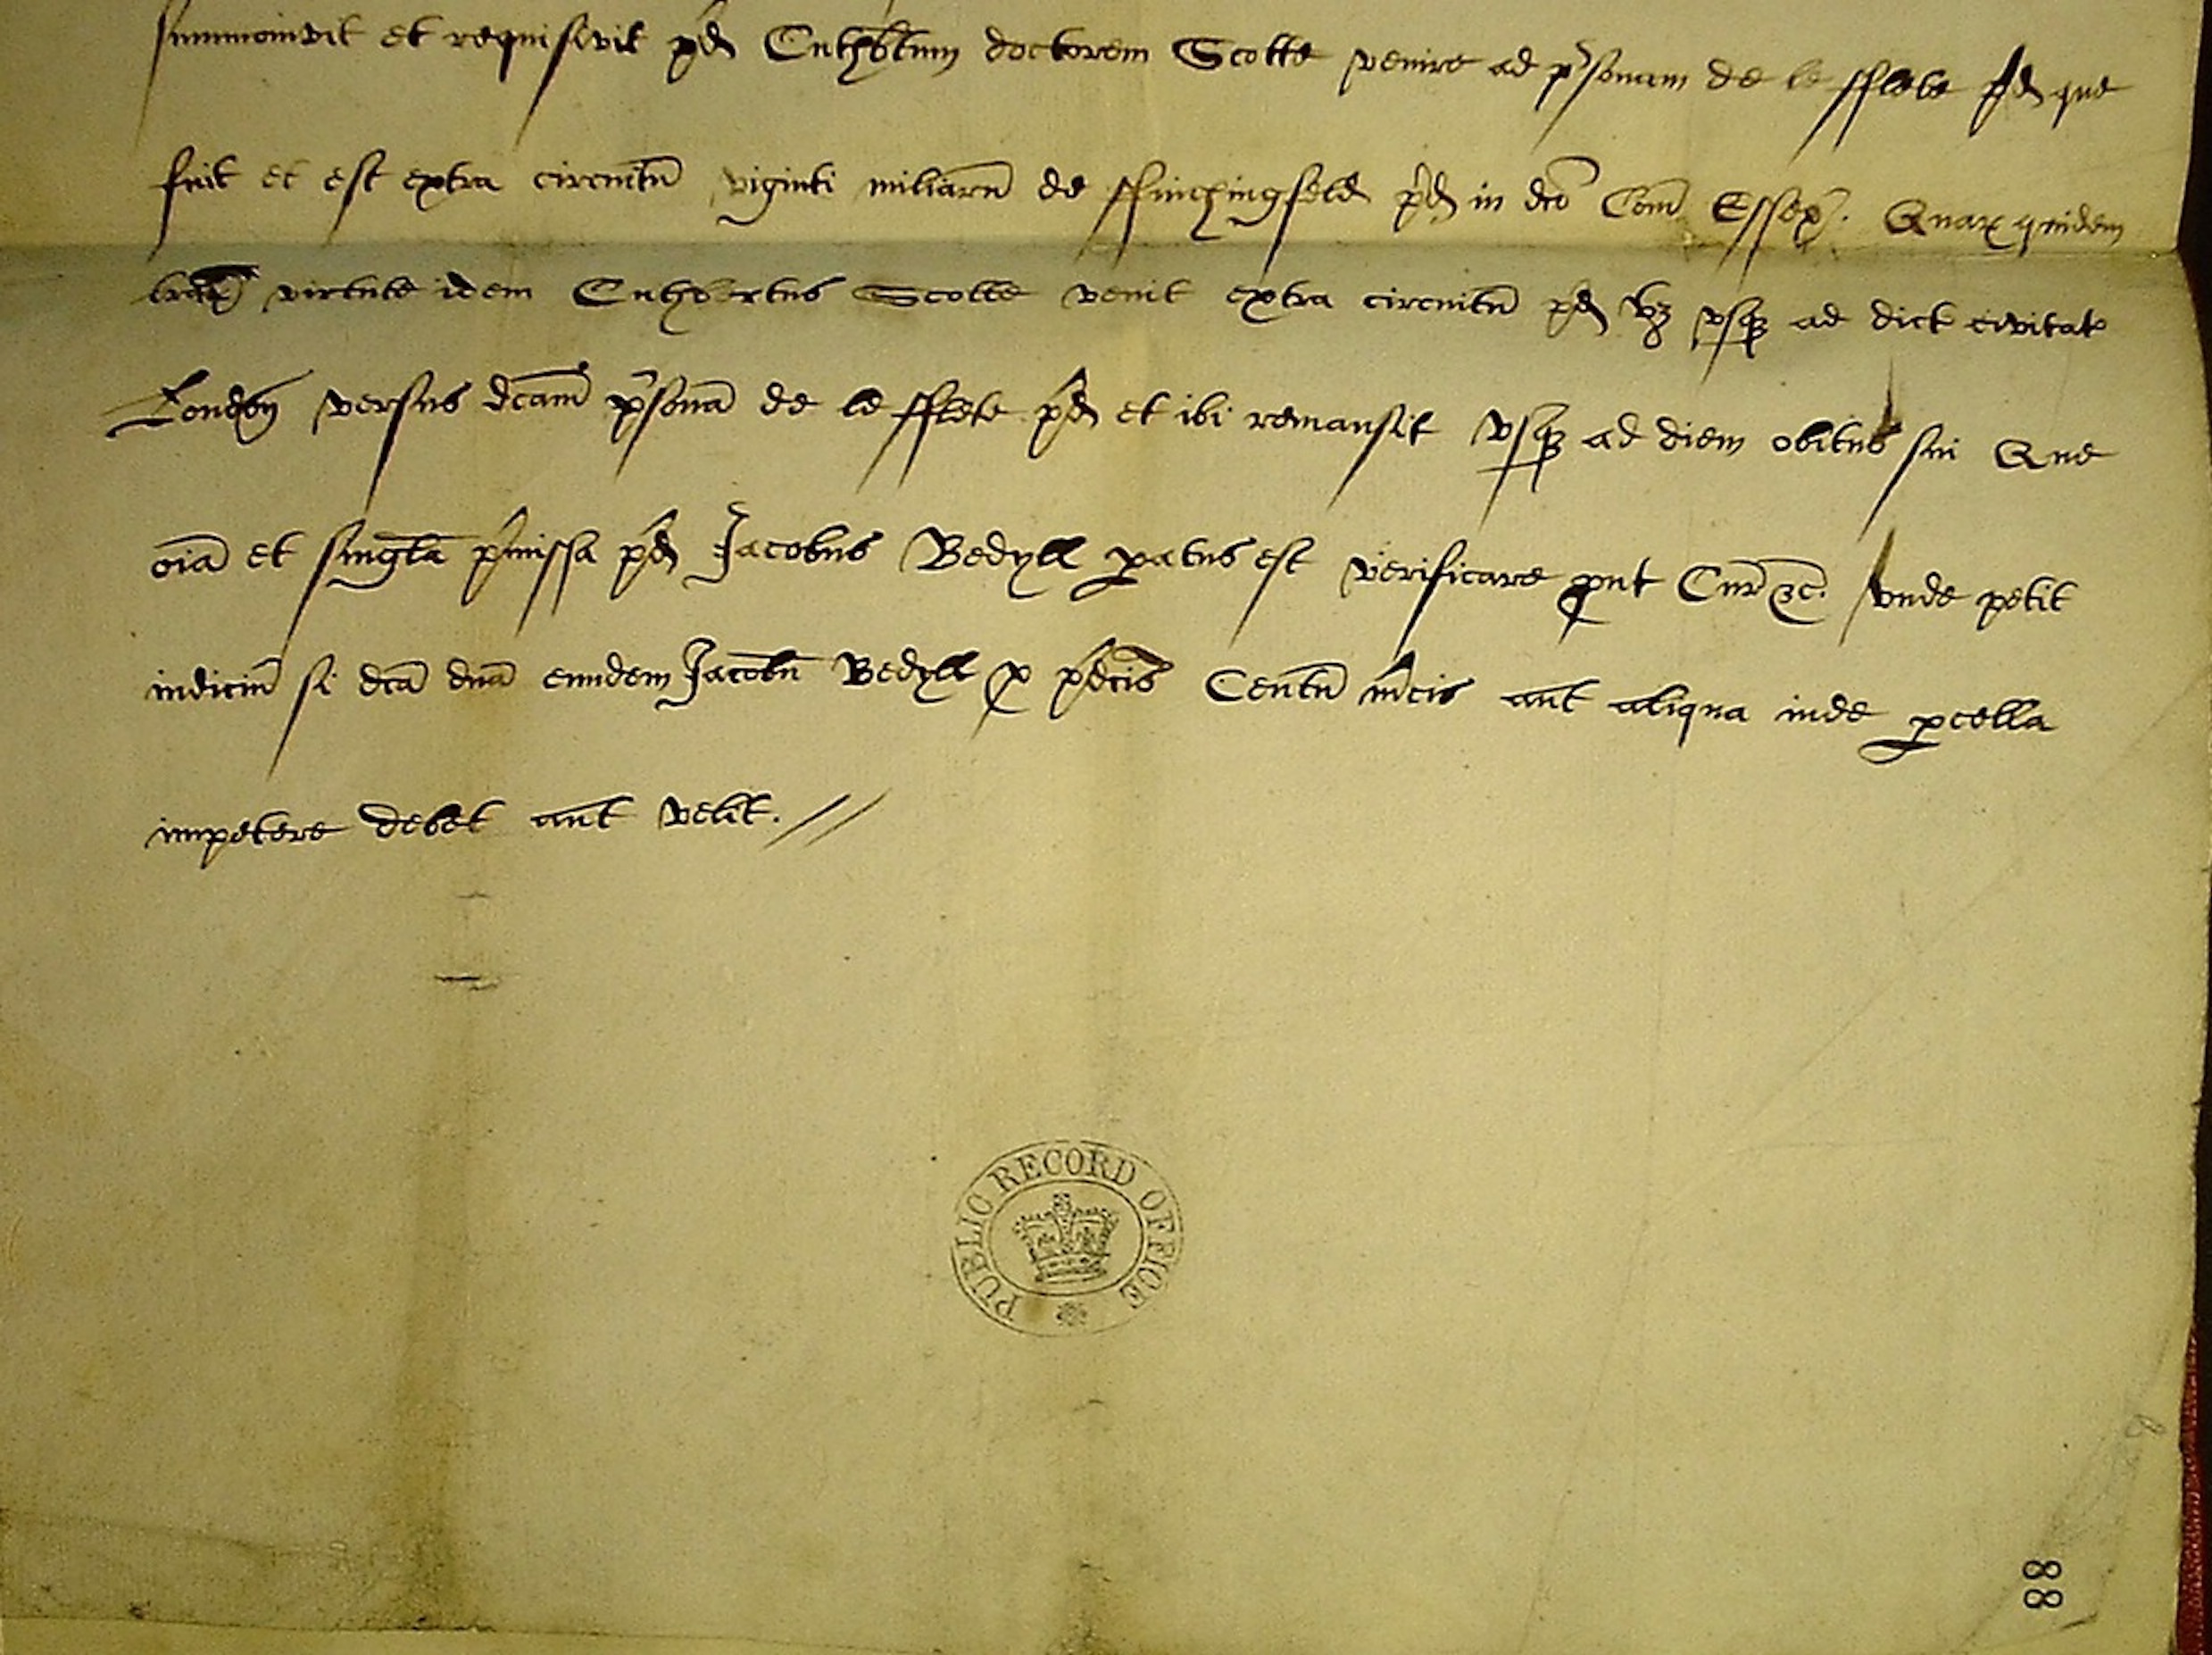 summonivit et requisivit p̄d Cuthb̄tum doctorem Scotte venire ad p̄sonam de le fflete p̄d que
fuit et est extra circuitū viginti miliarū de ffinchingfeld p̄d in dc̄o Com̄ Essex. Quar quidem
lrar̄ virtute idem Cuthbertus Scotte venit extra circuitū p̄d vz vsqz ad dict civitate
London versus dcam̄ p̄sonā de le fflete p̄d et ibi remansit vsqz ad diem obitus sui Que
oīa et singl̄a p̄missa p̄d Jacobus Bedyll patus est verificare put Cur̄ &c. vnde petit
iudiciū si dc̄a dn̄a eundem Jacobū Bedyll p p̄dcīs Centū m̄cis aut aliqua inde pcella
impetere debet aut velit. //
PUBLIC RECORD OFFICE
88